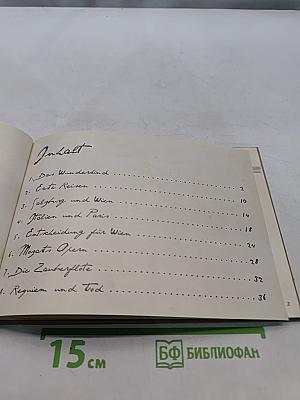 Inhalt
1. Das Wunderkind .......... 2
2. Erste Reisen .......... 10
3. Salzburg und Wien .......... 14
4. Italien und Paris .......... 18
5. Entscheidung für Wien .......... 24
6. Mozarts Opern .......... 28
7. Die Zauberflöte .......... 32
8. Requiem und Tod .......... 36
15 см
БФ БИБЛИОФАН